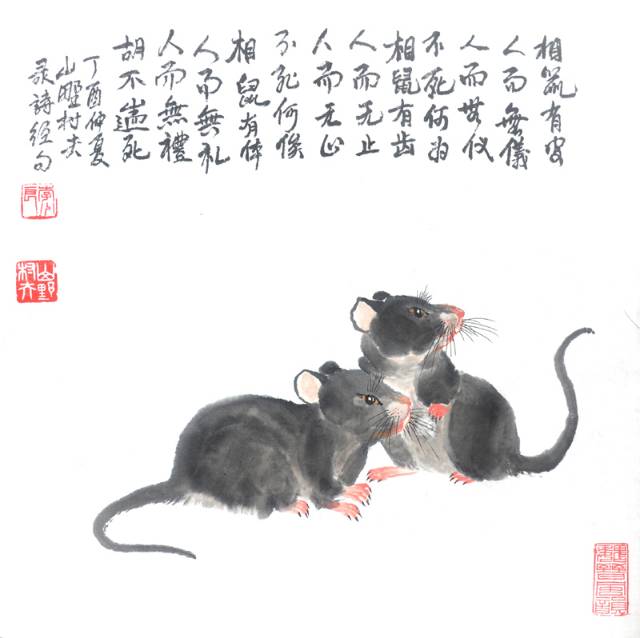 相鼠有皮
人而無儀
人而無仪
不死何为
相鼠有齿
人而无止
人而无止
不死何俟
相鼠有体
人而無礼
人而無禮
胡不遄死
丁酉仲夏
山野村夫
录詩經句
山野村夫